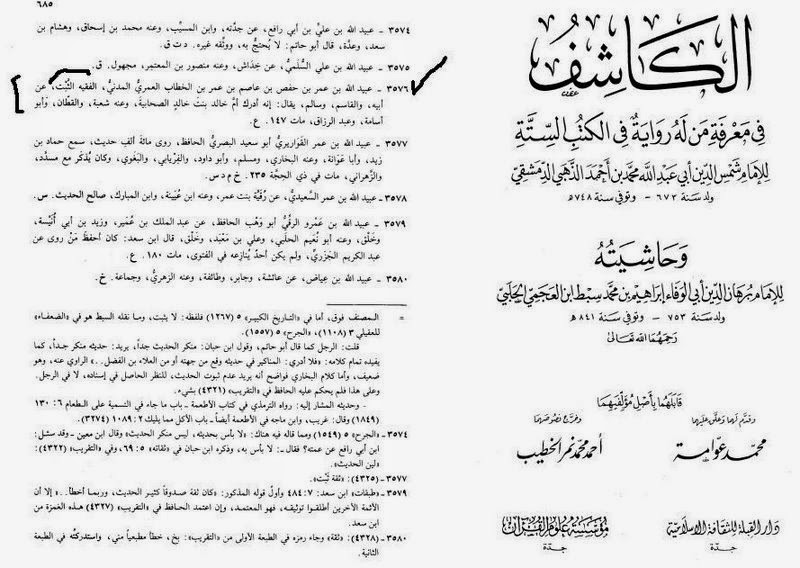 الكاشف
في معرفة من له رواية في الكتب الستة
للإمام شمس الدين أبي عبد الله محمد بن أحمد الذهبي الدمشقي
ولد سنة ٦٧٣ - وتوفي سنة ٧٤٨ هـ
وحاشيته
للإمام برهان الدين أبي الوفاء إبراهيم بن محمد سبط ابن العجمي الحلبي
ولد سنة ٧٥٣ - وتوفي سنة ٨٤١ هـ
رحمهما الله تعالى
قابلهما بأصل مؤلفيهما
وقدم لهما وعلق عليهما
محمد عوامة
وخرج نصوصهما
أحمد محمد نمر الخطيب
دار القبلة للثقافة الإسلامية
جدة
مؤسسة علوم القرآن
جدة
٦٨٥
٣٥٧٤ - عبيد الله بن عليّ بن أبي رافع، عن جدَّته، وابن المسيِّب، وعنه محمد بن إسحاق، وهشام بن
سعد، وعدَّة، قال أبو حاتم: لا يُحتجُّ به، ووثَّقه غيره. د ت ق.
٣٥٧٥ - عبيد الله بن علي السُّلَميُّ، عن خِداش، وعنه منصور بن المعتمِر، مجهول. ق.
٣٥٧٦ - عبيد الله بن عمر بن حفص بن عاصم بن عمر بن الخطاب العمريُّ المدنيُّ، الفقيه الثَّبْت، عن
أبيه، والقاسم، وسالم، يقال: إنه أدرك أمَّ خالد بنتَ خالدٍ الصحابيةَ، وعنه شعبة، والقطَّان، وأبو
أسامة، وعبد الرزاق، مات ١٤٧. ع.
٣٥٧٧ - عبيد الله بن عمر القَواريريُّ أبو سعيد البصريُّ الحافظ، روى مائة ألف حديث، سمع حماد بن
زيد، وأبا عَوَانة، وعنه البخاري، ومسلم، وأبو داود، والفِرْيابي، والبَغَوي، وكان يُذكر مع مسدَّد،
والزَّهراني، مات في ذي الحِجَّة ٢٣٥. خ م د س.
٣٥٧٨ - عبيد الله بن عمر السَّعيديُّ، عن رُقَيَّة بنتِ عمر، وعنه ابن عُيَينة، وابن المبارك، صالح الحديث. س.
٣٥٧٩ - عبيد الله بن عَمْرو الرقِّيُّ أبو وَهْب الحافظ، عن عبد الملك بن عُمَير، وزيد بن أبي أُنَيْسة،
وخَلْق، وعنه أبو نُعَيم الحلَبي، وعلي بن مَعْبَد، وخَلْق، قال ابن سعد: كان أحفظَ مَنْ روى عن
عبد الكريم الجَزَريِّ، ولم يكن أحدٌ يُنازعه في الفتوى، مات ١٨٠. ع.
٣٥٨٠ - عبيد الله بن عِياض، عن عائشة، وجابر، وطائفة، وعنه الزهريُّ، وجماعة. خ.
= المصنف فوق، أما في «التاريخ الكبير» ٥ (١٢٦٧) فلفظه: لا يثبت، وما نقله السبط هو في «الضعفاء»
للعقيلي ٣ (١١٠٨)، «الجرح» ٥ (١٥٥٧).
قلت: الرجل كما قال أبو حاتم، وقول ابن حبان: منكر الحديث جداً، يريد: حديثه منكر جداً، كما
يفيده تمام كلامه: «فلا أدري: المناكير في حديثه وقع من جهته أو من العلاء بن الفضل..» الراوي عنه، وهو
ضعيف، وأما كلام البخاري فواضح أنه يريد عدم ثبوت الحديث، للنظر الحاصل في إسناده، لا في الرجل.
وعلى هذا فلم يحكم عليه الحافظ في «التقريب» (٤٣٢١) بشيء.
- وحديثه المشار إليه: رواه الترمذي في كتاب الأطعمة - باب ما جاء في التسمية على الطعام ٦: ١٣٠
(١٨٤٩) وقال: غريب، وابن ماجه في الأطعمة أيضاً - باب الأكل مما يليك ٢: ١٠٨٩ (٣٢٧٤).
٣٥٧٤ - «الجرح» ٥ (١٥٤٩) ومما قاله فيه هناك: «لا بأس بحديثه، ليس منكر الحديث» وقال ابن معين - وقد سئل:
ابن أبي رافع عن عمته؟ فقال -: لا بأس به، وذكره ابن حبان في «ثقاته» ٥: ٦٩، وفي «التقريب» (٤٣٢٢):
«لين الحديث».
٣٥٧٧ - (٤٣٢٥): «ثقة ثَبْت».
٣٥٧٩ - «طبقات» ابن سعد: ٧: ٤٨٤ وأولُ قوله المذكور: «كان ثقة صدوقاً كثير الحديث، وربما أخطأ..» إلا أن
الأئمة الآخرين أطلقوا توثيقه، فهو المعتمد، وإن اعتمد الحافظ في «التقريب» (٤٣٢٧) هذه الغمزة من
ابن سعد.
٣٥٨٠ - (٤٣٢٨): «ثقة» وجاء رمزه في الطبعة الأولى من «التقريب»: بخ، خطأ مطبعياً مني، واستدركته في الطبعة
الثانية.